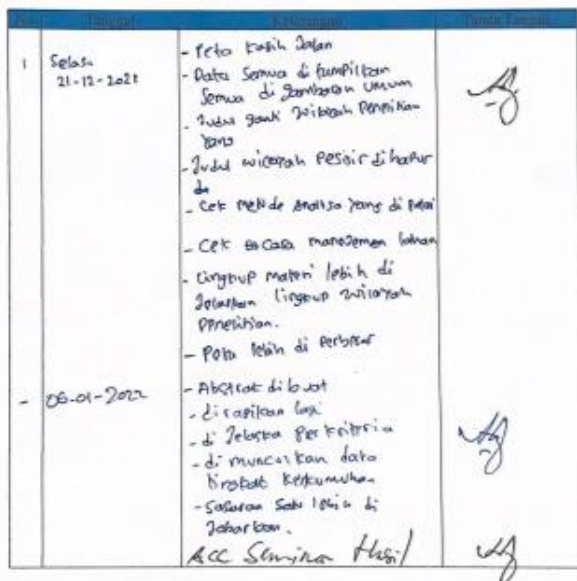 No Tanggal Keterangan Tanda Tangan
1 Selasa
21-12-2021
- Peta kasih Jalan
- Data Semua di tampilkan
Semua di Gambaran Umum
- Judul ganti Wilayah Penelitian
yang
- Judul wilayah Pesisir dihapus
- Cek metode analisa yang di pakai
- Cek secara manajemen lahan
- Lingkup materi lebih di
Jelaskan lingkup wilayah
Penelitian.
- Peta lebih di perbesar
- 06-01-2022
- Abstrak di buat
- di rapikan lagi
- di Jelaska Per kriteria
- di munculkan data
tingkat kekumuhan
- Sasaran Satu lebih di
Jabarkan.
ACC Seminar Hasil